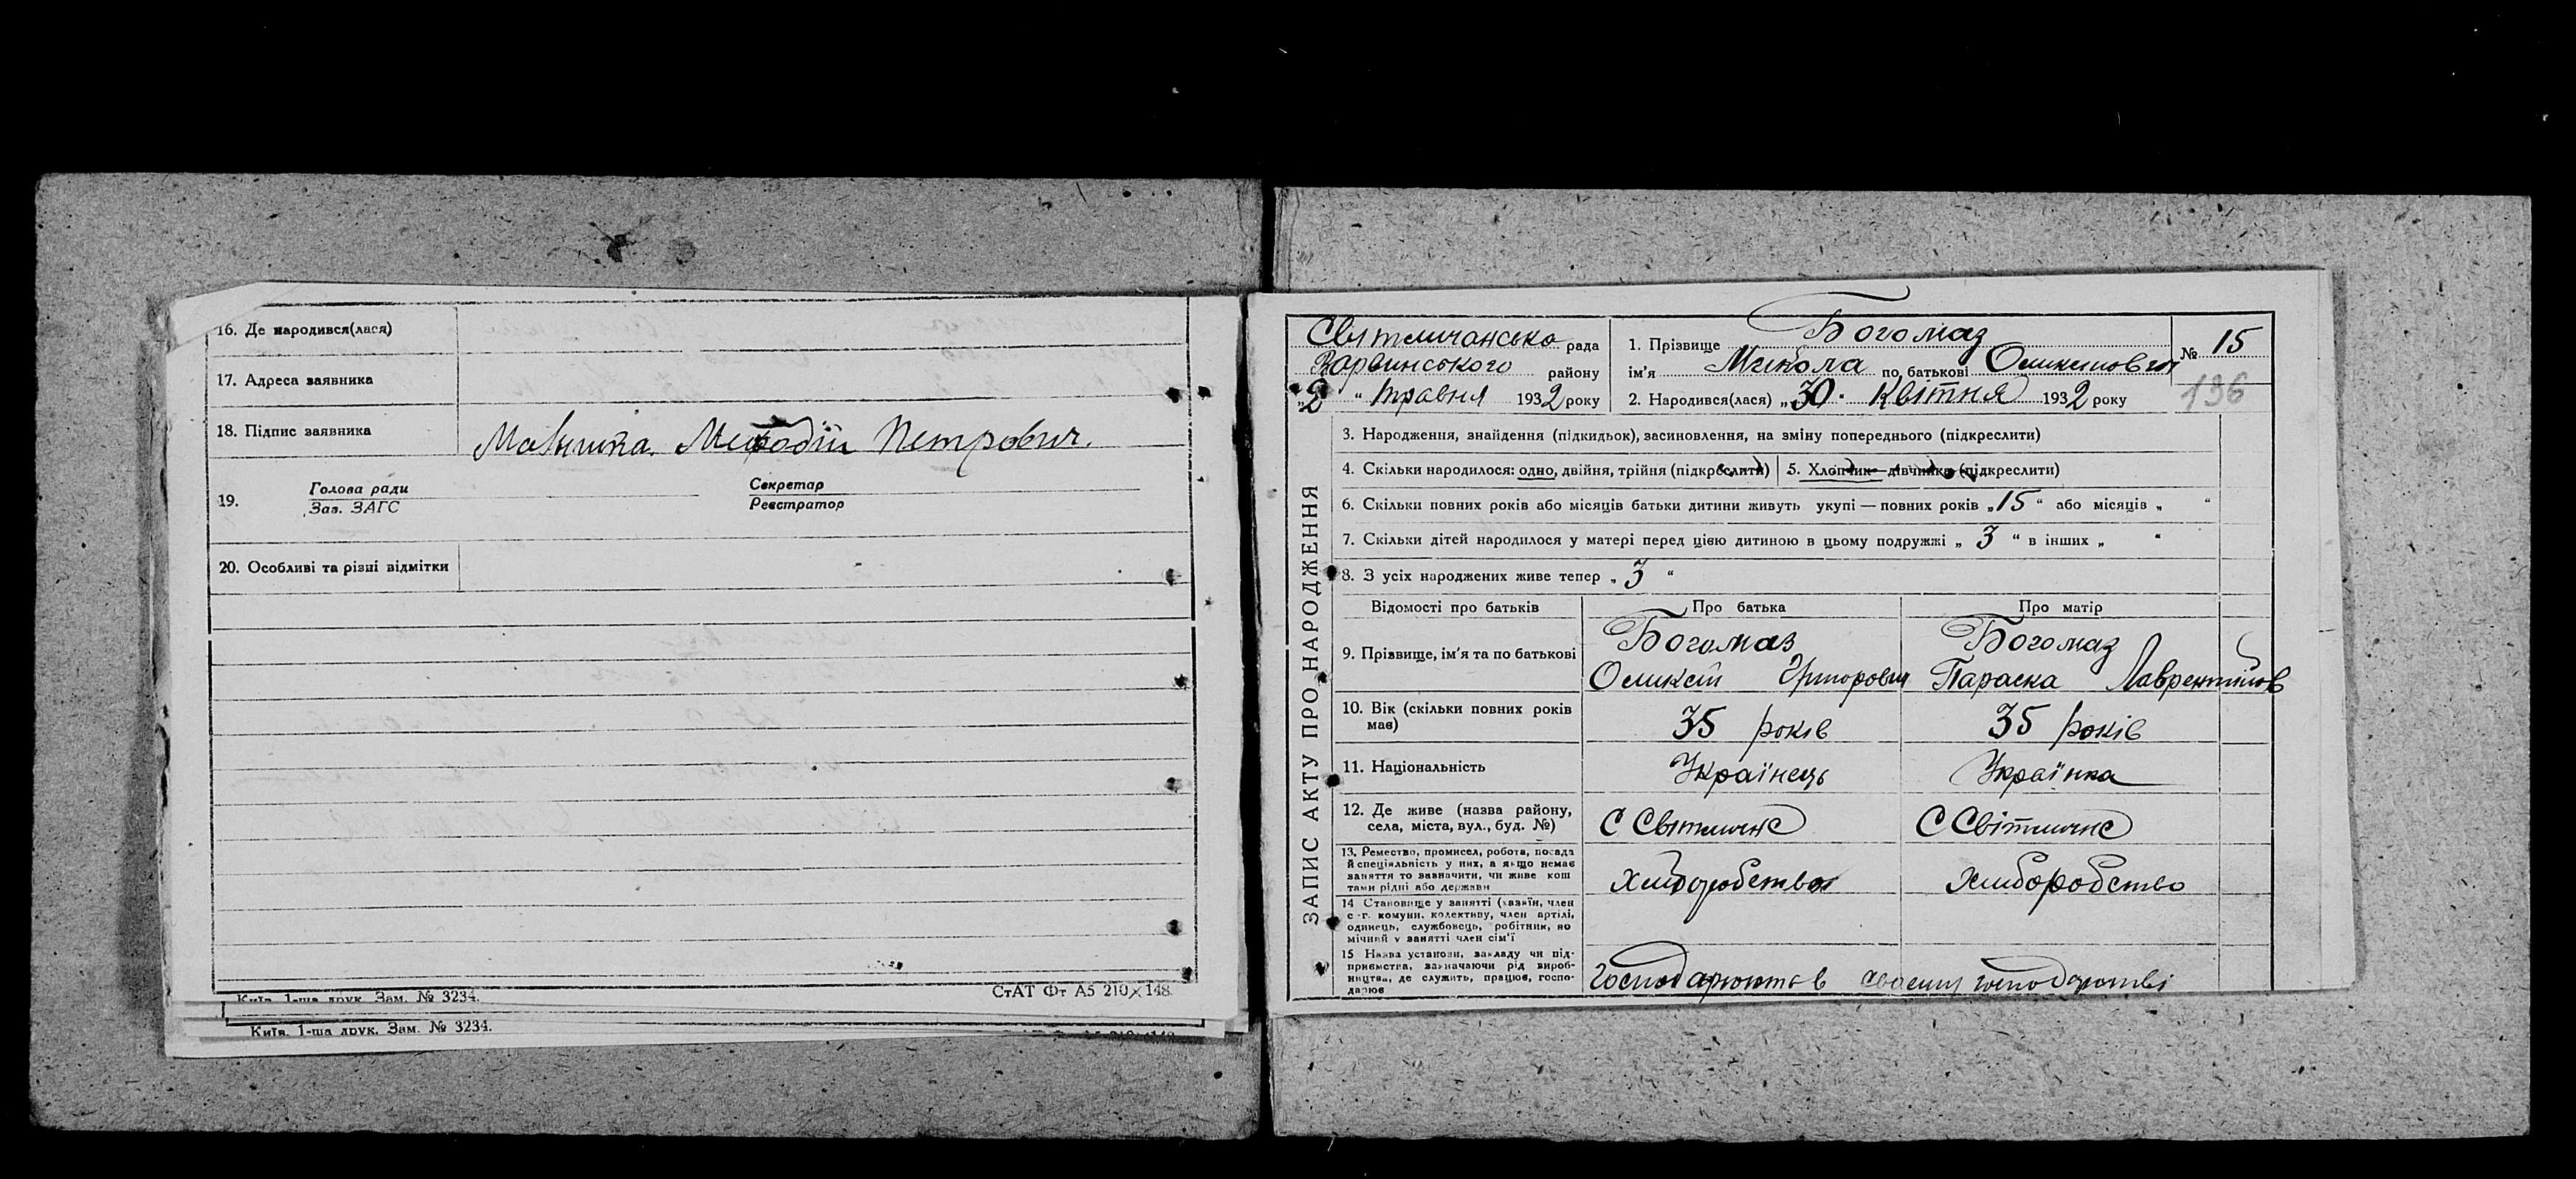 16. Де народився(лася)
17. Адреса заявника
18. Підпис заявника
Мавшика. Мефодій Петрович.
19. Голова ради Секретар
Зав. ЗАГС Реєстратор
20. Особливі та різні відмітки
Київ. 1-ша друк. Зам. № 3234. СтАТ Фт А5 210×148.
Київ. 1-ша друк. Зам. № 3234.
ЗАПИС АКТУ ПРО НАРОДЖЕННЯ
Світличансько рада
Варвинського району
„2“ травня 1932 року
1. Прізвище Богомаз
ім'я Микола по батькові
2. Народився(лася) „30. Квітня 1932 року
№ 15
196
3. Народження, знайдення (підкидьок), засиновлення, на зміну попереднього (підкреслити)
4. Скільки народилося: одно, двійня, трійня (підкреслити) 5. Хлопчик — дівчинка (підкреслити)
6. Скільки повних років або місяців батьки дитини живуть укупі — повних років „15“ або місяців „ “
7. Скільки дітей народилося у матері перед цією дитиною в цьому подружжі „3“ в інших „ “
8. З усіх народжених живе тепер „3“
Відомості про батьків Про батька Про матір
9. Прізвище, ім'я та по батькові
Богомаз Богомаз
Григорович Параска Лаврентіїов
10. Вік (скільки повних років
має)
35 років 35 років
11. Національність Українець Українка
12. Де живе (назва району,
села, міста, вул., буд. №)
С Світличне С Світличне
13. Ремество, промисел, робота, посада
й спеціяльність у них, а якщо немає
заняття то зазначити, чи живе кош
тами рідні або держави
Хліборобство Хліборобство
14 Становище у занятті (хазяїн, член
с.-г. комуни, колективу, член артілі,
одинець, службовець, робітник, по
мічний у занятті член сім'ї
15 Назва установи, закладу чи під-
приємства, зазначаючи рід вироб-
ництва, де служить, працює, госпо-
дарює
Господарюють в своєму господарстві